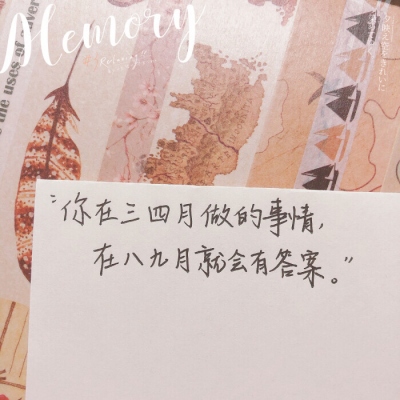 Memory
the uses of
“你在三四月做的事情，
在八九月就会有答案。”